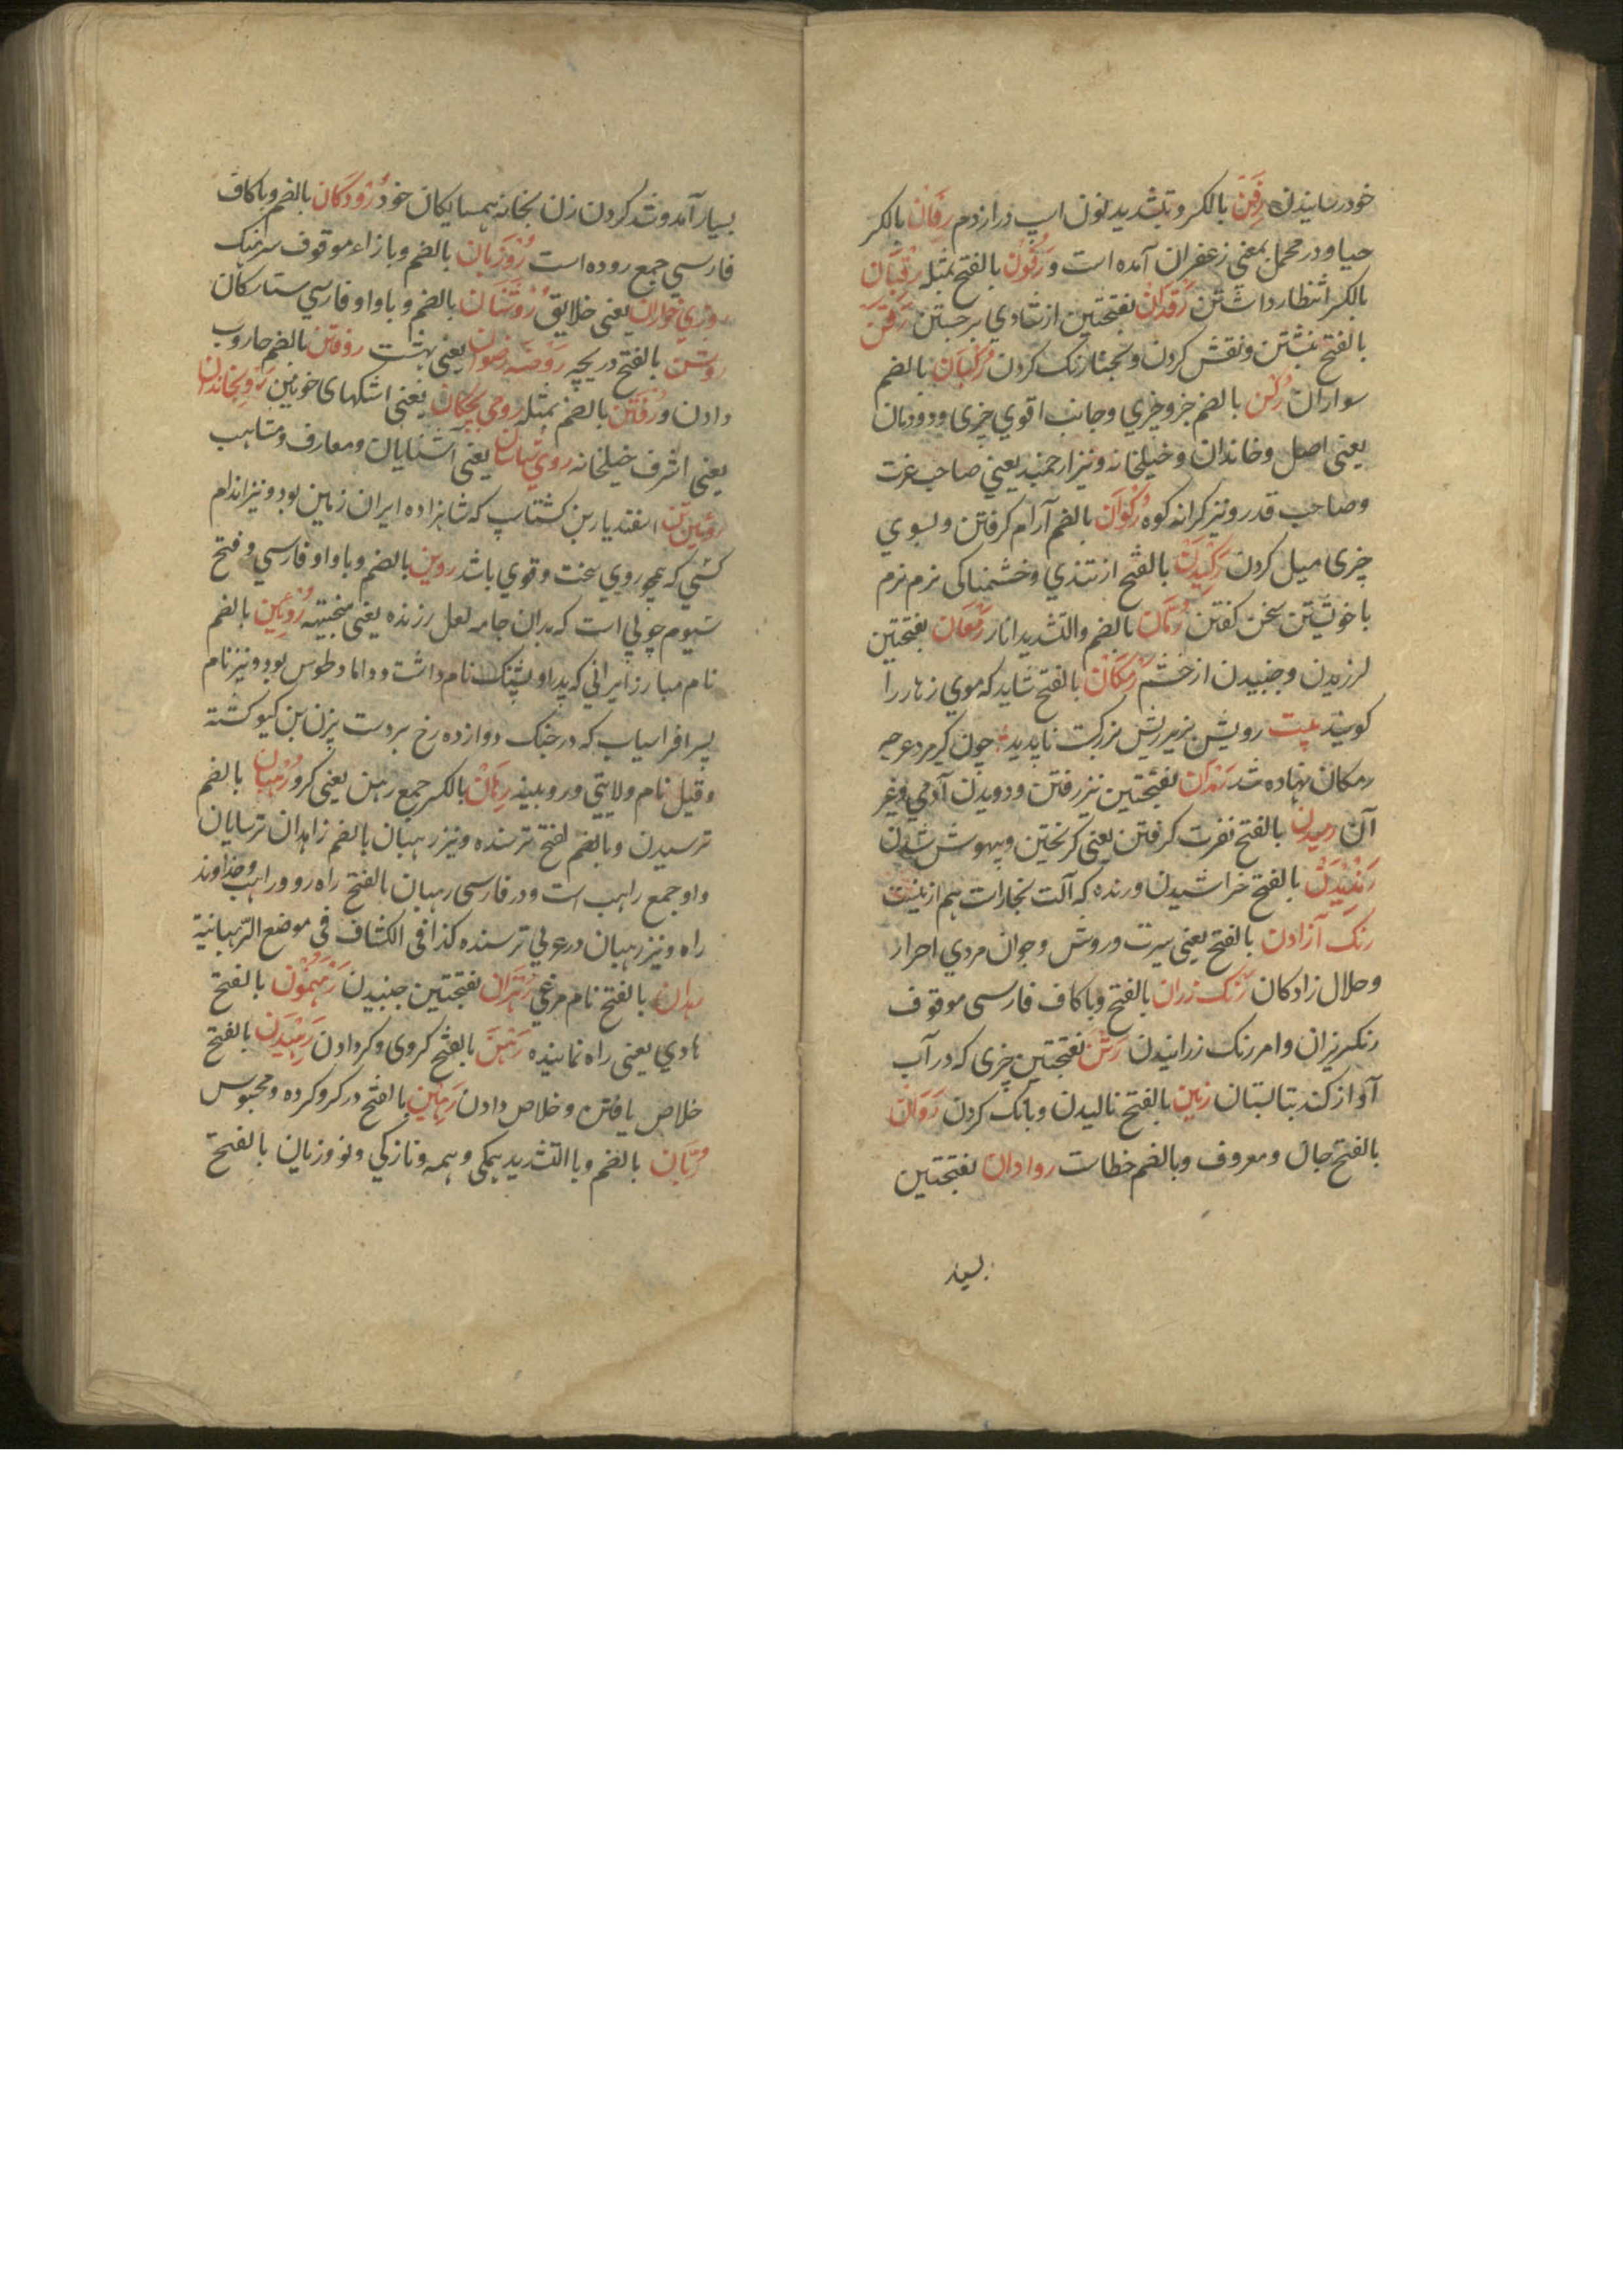 خود رسانیدن رفن بالکسر و بتشدید نون اسپ دراز دم رفان بالکسر
حیا و در مجمل بمعنی زعفران آمده است و رقون بالفتح بمثله رقبان
بالکسر انتظار داشتن رقدان بفتحتین از شادی برجستن رقن
بالفتح نبشتن و نقش کردن و بحنا رنک کردن رکبان بالضم
سواران رکن بالضم جزو چیزی و جانب اقوی چیزی و دودمان
یعنی اصل و خاندان و خیلخانه و نیز ارجمند یعنی صاحب عزت
و صاحب قدر و نیز کرانه کوه رکوان بالضم آرام کرفتن و بسوی
چیزی میل کردن رکیدن بالفتح از تندی و خشمناکی نرم نرم
با خویشتن سخن کفتن رمان بالضم والتشدید انار رمعان بفتحتین
لرزیدن و جنبیدن از خشم رمکان بالفتح شاید که موی زهار را
کویند بیت رویش بزیر ریش بزرکت ناپدید چون کیر مرد عرجه
رمکان نهاده شد رندان بفتحتین نیز رفتن و دویدن آدمی و غیر
آن رمیدن بالفتح نفرت کرفتن یعنی کریختن و بیهوش شدن
رندیدن بالفتح خراشیدن و رنده که آلت نجار است هم ازینست
رنک آزادن بالفتح یعنی سیرت و روش و جوان مردی احرار
و حلال زادکان رنک رزان بالفتح و با کاف فارسی موقوف
رنکریزان و امر رنک رزانیدن رنن بفتحتین چیزی که در آب
آواز کند بتابستان رنین بالفتح نالیدن و بانک کردن روان
بالفتح جان و معروف و بالضم خطاست روادان بفتحتین
بسیار
بسیار آمد و شد کردن زن بخانه همسایکان خود رودکان بالضم و با کاف
فارسی جمع روده است روزبان بالضم و با زاء موقوف سرهنک
روزی خواران یعنی خلایق روشنان بالضم و با واو فارسی ستارکان
روشن بالفتح دریچه روضه رضوان یعنی بهشت روفتن بالضم جاروب
دادن و رفتن بالضم بمثله رومی بچکان یعنی اشکهای خونین
یعنی اشرف خیلخانه روی شناسان یعنی آشنایان و معارف و مشاهب
روئین تن اسفندیار بن کشتاسپ که شاهزاده ایران زمین بود و نیز اندام
کسی که همچو روی سخت و قوی باشد روین بالضم و با واو فارسی و فتح
سیوم چوبی است که بدان جامه لعل رزنده یعنی مجتیهه روئین بالضم
نام مبارز ایرانی که پدر او پشنک نام داشت و داماد طوس بود و نیز نام
پسر افراسیاب که در جنک دوازده رخ بر دست بیزن بن کیو کشته
و قیل نام ولایتی و روبینه رهان بالکسر جمع رهن یعنی کرو رهبان بالضم
ترسیدن و بالضم لفتح ترسنده و نیز رهبان بالضم زاهدان ترسایان
و او جمع راهب است و در فارسی رهبان بالفتح راه رو و راهب و خداوند
راه و نیز رهبان در عربی ترسنده کذا فی الکشاف فی موضع الرهبانیة
رهدان بالفتح نام مرغی رهزان بفتحتین جنبیدن رهنمون بالفتح
هادی یعنی راه نماینده رهن بالفتح کروی و کرو دادن رهیدن بالفتح
خلاص یافتن و خلاص دادن رهین بالفتح در کرو کرده و محبوس
ربان بالضم و با التشدید همکی و همه و نازکی و نو و زبان بالفتح